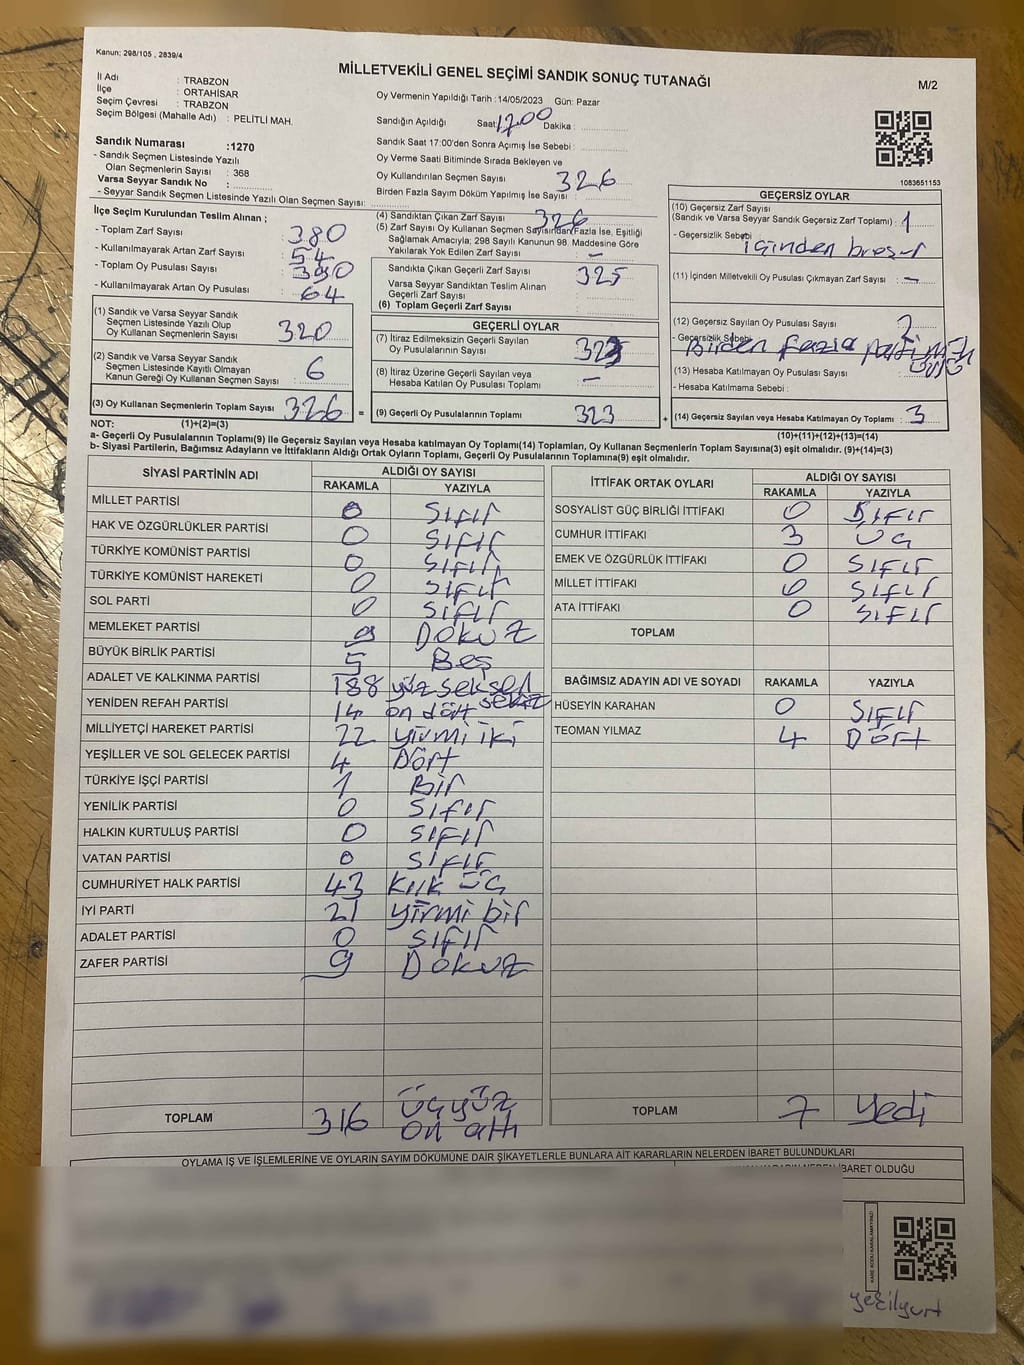 Kanun: 298/105 , 2839/4
MİLLETVEKİLİ GENEL SEÇİMİ SANDIK SONUÇ TUTANAĞI
M/2
İl Adı : TRABZON
İlçe : ORTAHİSAR
Seçim Çevresi : TRABZON
Seçim Bölgesi (Mahalle Adı) : PELİTLİ MAH.
Sandık Numarası :1270
- Sandık Seçmen Listesinde Yazılı
Olan Seçmenlerin Sayısı : 368
Varsa Seyyar Sandık No :
- Seyyar Sandık Seçmen Listesinde Yazılı Olan Seçmen Sayısı:
Oy Vermenin Yapıldığı Tarih :14/05/2023 Gün: Pazar
Sandığın Açıldığı Saat: 17.00 Dakika :
Sandık Saat 17:00'den Sonra Açımış İse Sebebi :
Oy Verme Saati Bitiminde Sırada Bekleyen ve
Oy Kullandırılan Seçmen Sayısı : 326
Birden Fazla Sayım Döküm Yapılmış İse Sayısı :
1083651153
İlçe Seçim Kurulundan Teslim Alınan ;
- Toplam Zarf Sayısı : 380
- Kullanılmayarak Artan Zarf Sayısı : 54
- Toplam Oy Pusulası Sayısı : 390
- Kullanılmayarak Artan Oy Pusulası : 64
(1) Sandık ve Varsa Seyyar Sandık
Seçmen Listesinde Yazılı Olup
Oy Kullanan Seçmenlerin Sayısı : 320
(2) Sandık ve Varsa Seyyar Sandık
Seçmen Listesinde Kayıtlı Olmayan
Kanun Gereği Oy Kullanan Seçmen Sayısı : 6
(3) Oy Kullanan Seçmenlerin Toplam Sayısı : 326
(4) Sandıktan Çıkan Zarf Sayısı : 326
(5) Zarf Sayısı Oy Kullanan Seçmen Sayısından Fazla İse, Eşitliği
Sağlamak Amacıyla; 298 Sayılı Kanunun 98. Maddesine Göre
Yakılarak Yok Edilen Zarf Sayısı : -
Sandıkta Çıkan Geçerli Zarf Sayısı : 325
Varsa Seyyar Sandıktan Teslim Alınan
Geçerli Zarf Sayısı :
(6) Toplam Geçerli Zarf Sayısı :
GEÇERLİ OYLAR
(7) İtiraz Edilmeksizin Geçerli Sayılan
Oy Pusulalarının Sayısı : 323
(8) İtiraz Üzerine Geçerli Sayılan veya
Hesaba Katılan Oy Pusulası Toplamı : -
= (9) Geçerli Oy Pusulalarının Toplamı : 323 +
GEÇERSİZ OYLAR
(10) Geçersiz Zarf Sayısı
(Sandık ve Varsa Seyyar Sandık Geçersiz Zarf Toplamı) : 1
- Geçersizlik Sebebi : içinden broşur
(11) İçinden Milletvekili Oy Pusulası Çıkmayan Zarf Sayısı : -
(12) Geçersiz Sayılan Oy Pusulası Sayısı : 2
- Geçersizlik Sebebi : Birden fazla
(13) Hesaba Katılmayan Oy Pusulası Sayısı :
- Hesaba Katılmama Sebebi :
(14) Geçersiz Sayılan veya Hesaba Katılmayan Oy Toplamı : 3
NOT: (1)+(2)=(3)
(10)+(11)+(12)+(13)=(14)
a- Geçerli Oy Pusulalarının Toplamı(9) İle Geçersiz Sayılan veya Hesaba katılmayan Oy Toplamı(14) Toplamları, Oy Kullanan Seçmenlerin Toplam Sayısına(3) eşit olmalıdır. (9)+(14)=(3)
b- Siyasi Partilerin, Bağımsız Adayların ve İttifakların Aldığı Ortak Oyların Toplamı, Geçerli Oy Pusulalarının Toplamına(9) eşit olmalıdır.
SİYASİ PARTİNİN ADI ALDIĞI OY SAYISI
RAKAMLA YAZIYLA
MİLLET PARTİSİ 0 Sıfır
HAK VE ÖZGÜRLÜKLER PARTİSİ 0 Sıfır
TÜRKİYE KOMÜNİST PARTİSİ 0 Sıfır
TÜRKİYE KOMÜNİST HAREKETİ 0 Sıfır
SOL PARTİ 0 Sıfır
MEMLEKET PARTİSİ 9 Dokuz
BÜYÜK BİRLİK PARTİSİ 5 Beş
ADALET VE KALKINMA PARTİSİ 188 yüz seksen sekiz
YENİDEN REFAH PARTİSİ 14 on dört
MİLLİYETÇİ HAREKET PARTİSİ 22 yirmi iki
YEŞİLLER VE SOL GELECEK PARTİSİ 4 Dört
TÜRKİYE İŞÇİ PARTİSİ 1 Bir
YENİLİK PARTİSİ 0 Sıfır
HALKIN KURTULUŞ PARTİSİ 0 Sıfır
VATAN PARTİSİ 0 Sıfır
CUMHURİYET HALK PARTİSİ 43 Kırk üç
İYİ PARTİ 21 yirmi bir
ADALET PARTİSİ 0 Sıfır
ZAFER PARTİSİ 9 Dokuz
TOPLAM 316 üçyüz on altı
İTTİFAK ORTAK OYLARI ALDIĞI OY SAYISI
RAKAMLA YAZIYLA
SOSYALİST GÜÇ BİRLİĞİ İTTİFAKI 0 Sıfır
CUMHUR İTTİFAKI 3 üç
EMEK VE ÖZGÜRLÜK İTTİFAKI 0 Sıfır
MİLLET İTTİFAKI 0 Sıfır
ATA İTTİFAKI 0 Sıfır
TOPLAM
BAĞIMSIZ ADAYIN ADI VE SOYADI RAKAMLA YAZIYLA
HÜSEYİN KARAHAN 0 Sıfır
TEOMAN YILMAZ 4 Dört
TOPLAM 7 Yedi
OYLAMA İŞ VE İŞLEMLERİNE VE OYLARIN SAYIM DÖKÜMÜNE DAİR ŞİKAYETLERLE BUNLARA AİT KARARLARIN NELERDEN İBARET BULUNDUKLARI
KARARIN NEDEN İBARET OLDUĞU
KARE KODU KARALAMAYINIZ!
yeşilyurt